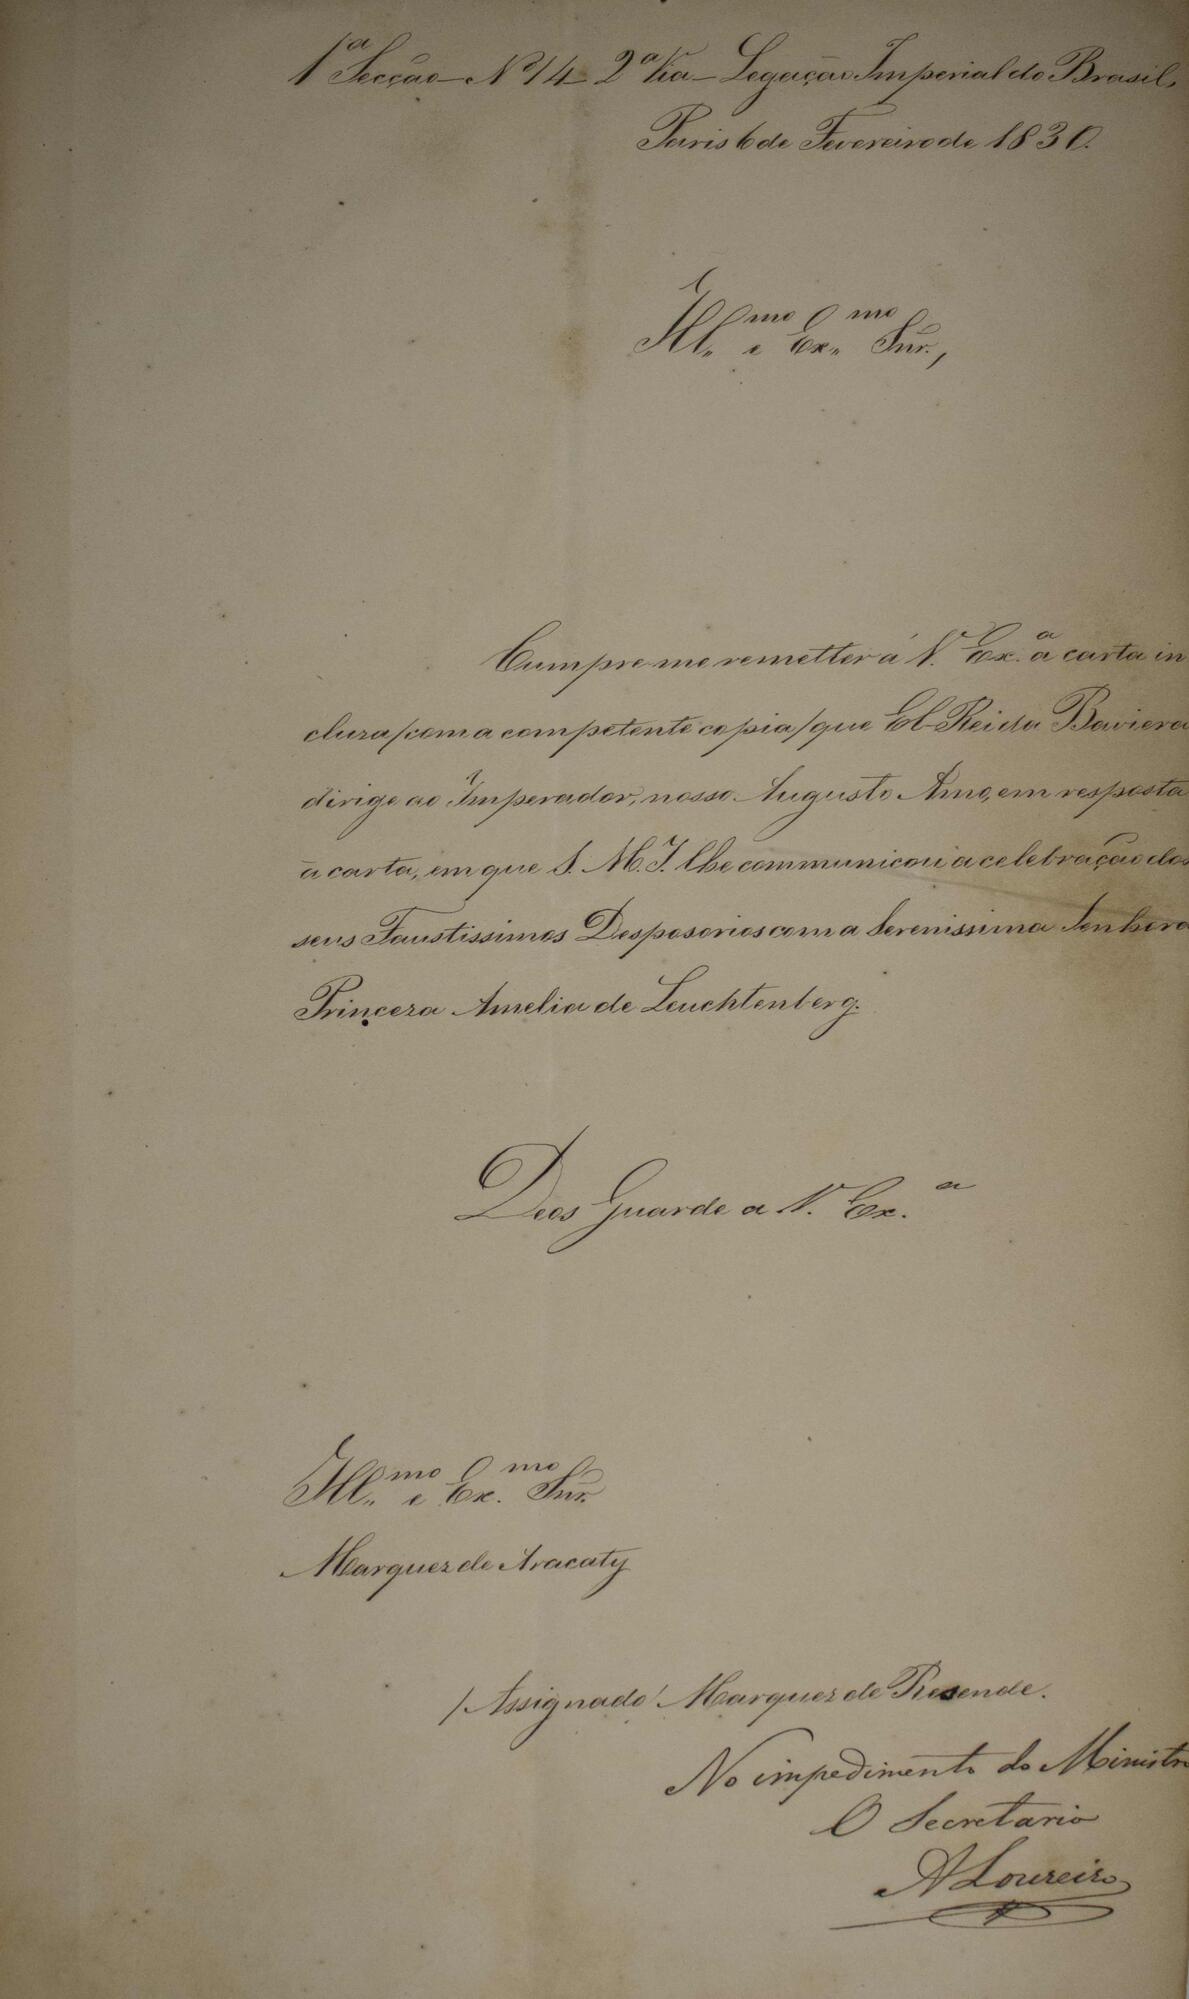 1ª Secção — Nº 14 2ª Via — Legação Imperial do Brasil,
Paris 6 de Fevereiro de 1830.
Ill.mo e Ex.mo Snr.,
Cumpre me remetter á V. Ex.ª a carta in
cluza /com a competente copia/ que El-Rei da Baviera
dirige ao Imperador, nosso Augusto Amo, em resposta
á carta, em que S. M. I. lhe communicou a celebração dos
seus Faustissimos Desposorios com a Serenissima Senhora
Princeza Amelia de Leuchtenberg.
Deos Guarde a V. Ex.ª
Ill.mo e Ex.mo Snr.
Marquez de Aracaty
/Assignado/ Marquez de Resende.
No impedimento do Ministro
O Secretario
A Loureiro